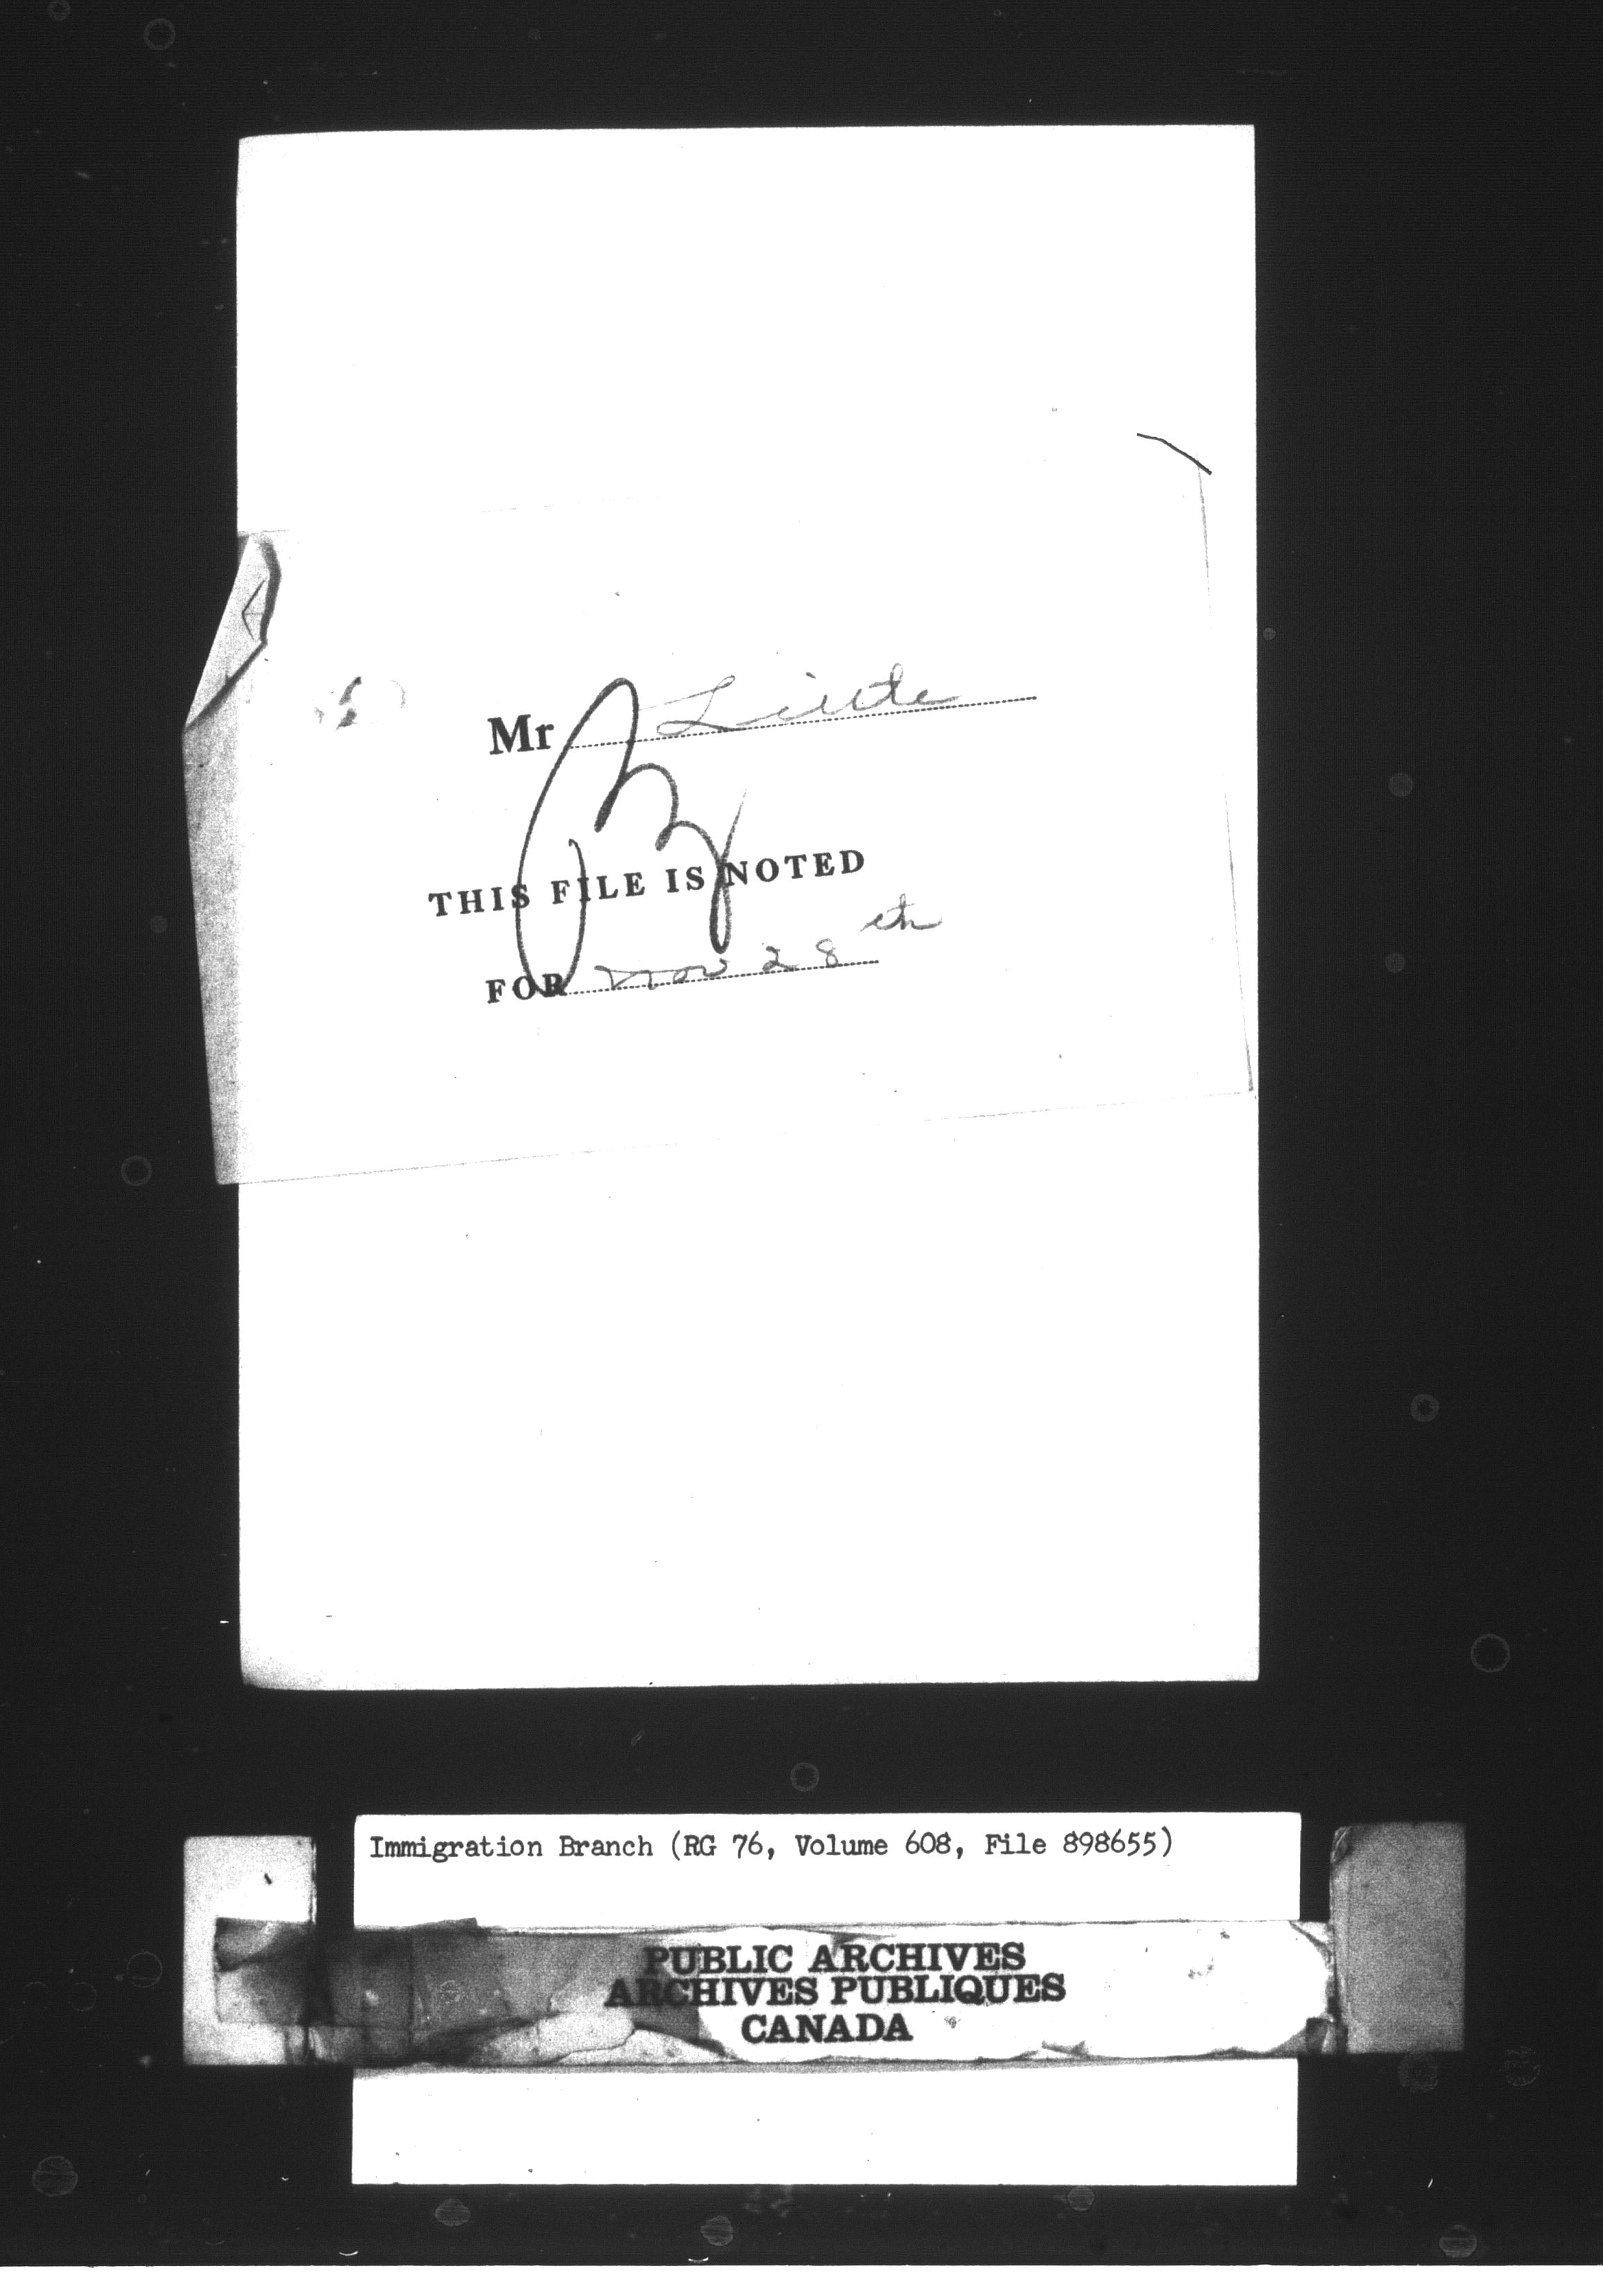 Mr Little
THIS FILE IS NOTED
FOR Nov 28th
Immigration Branch (RG 76, Volume 608, File 898655)
PUBLIC ARCHIVES
ARCHIVES PUBLIQUES
CANADA